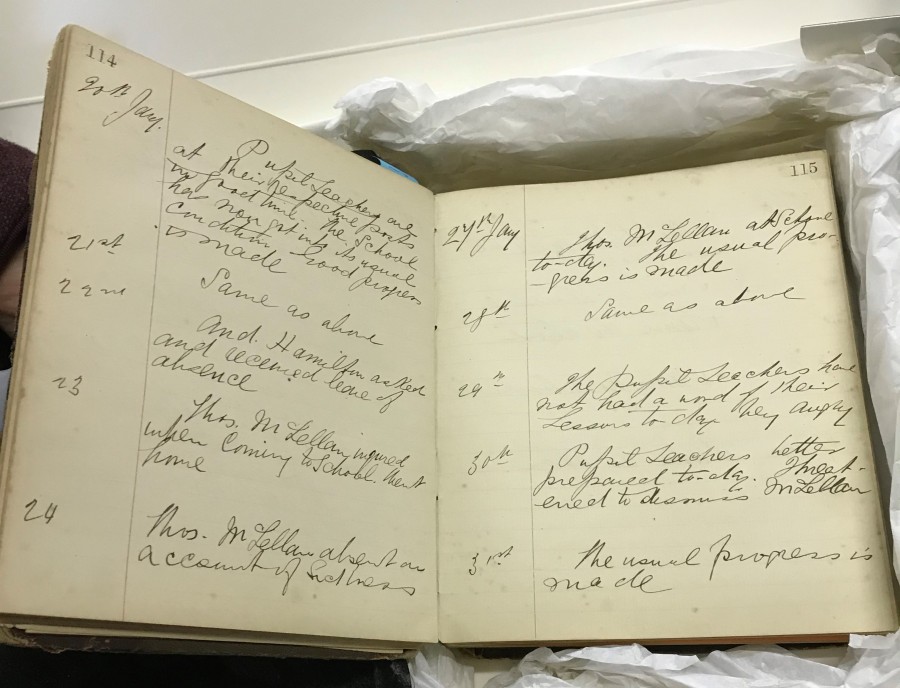 114
20th Jany.
Pupil Teachers are
at their respective posts
in good time. The School
has now got into its usual
condition Good progress
is made
21st
Same as above
22nd
And. Hamilton asked
and received leave of
absence
23
Thos. McLellan injured
when Coming to School. Went
home
24
Thos. McLellan absent on
account of Sickness
115
27th Jany
Thos. McLellan at School
to-day. The usual pro-
-gress is made
28th
Same as above
29th
The Pupil Teachers have
not had a word of their
Lessons to-day. Very angry
30th
Pupil Teachers better
prepared to-day. Threat-
ened to dismiss McLellan
31st
The usual progress is
made